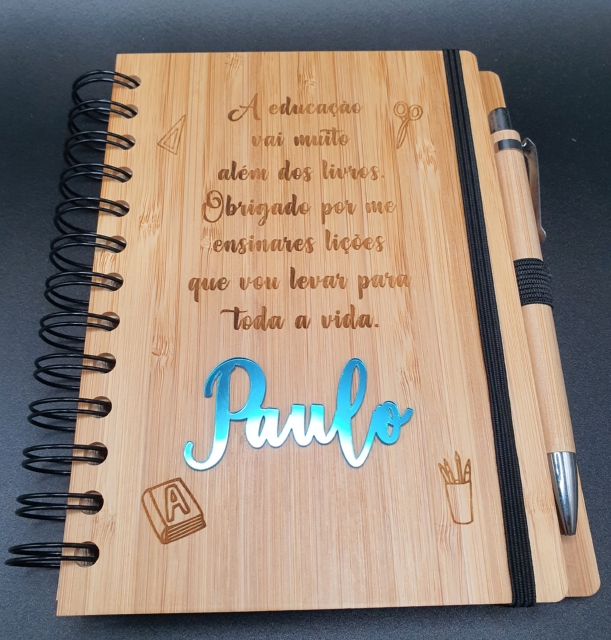 A educação
vai muito
além dos livros.
Obrigado por me
ensinares lições
que vou levar para
toda a vida.
Paulo
A